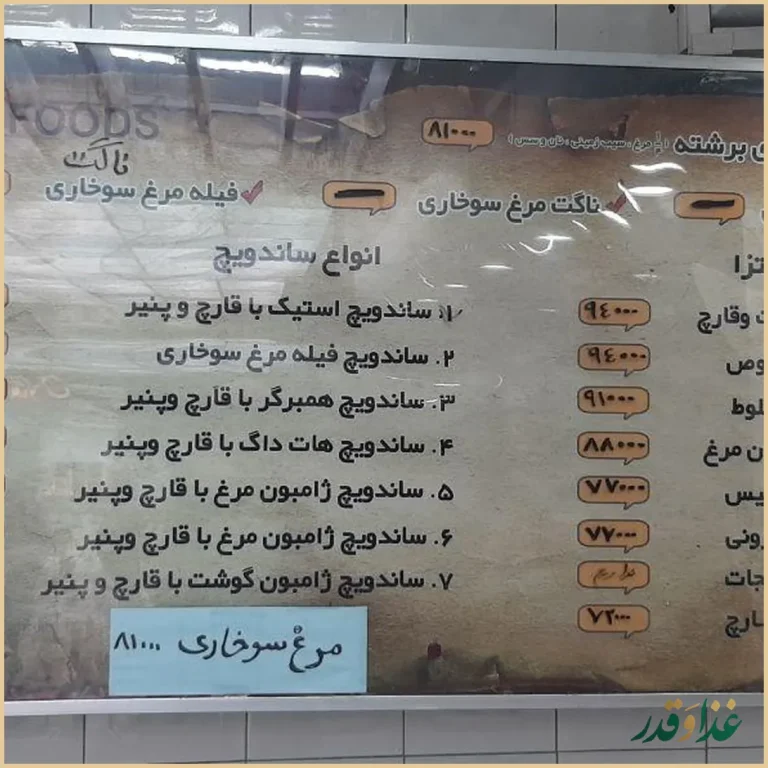 FOODS
ی برشته ( مرغ ، سیب زمینی ، نان و سس ) ۸۱۰۰۰
ناگت
ناگت مرغ سوخاری
فیله مرغ سوخاری
تزا
ت وقارچ ۹۴۰۰۰
وص ۹۴۰۰۰
لوط ۹۱۰۰۰
ن مرغ ۸۸۰۰۰
یس ۷۷۰۰۰
رونی ۷۷۰۰۰
جات نداریم
ارچ ۷۲۰۰۰
انواع ساندویچ
۱. ساندویچ استیک با قارچ و پنیر
۲. ساندویچ فیله مرغ سوخاری
۳. ساندویچ همبرگر با قارچ وپنیر
۴. ساندویچ هات داگ با قارچ وپنیر
۵. ساندویچ ژامبون مرغ با قارچ وپنیر
۶. ساندویچ ژامبون مرغ با قارچ وپنیر
۷. ساندویچ ژامبون گوشت با قارچ و پنیر
مرغ سوخاری ۸۱۰۰۰
غذا و قدر